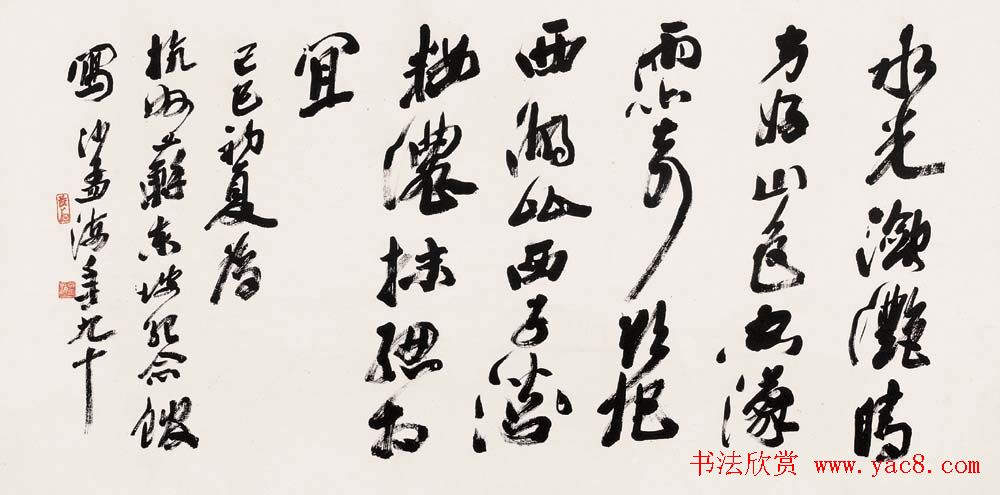 水光瀲灩晴
方好山色空濛
雨亦奇欲把
西湖比西子淡
妝濃抹總相
宜
己巳初夏為
杭州蘇東坡紀念館
寫 沙孟海年九十
书法欣赏 www.yac8.com